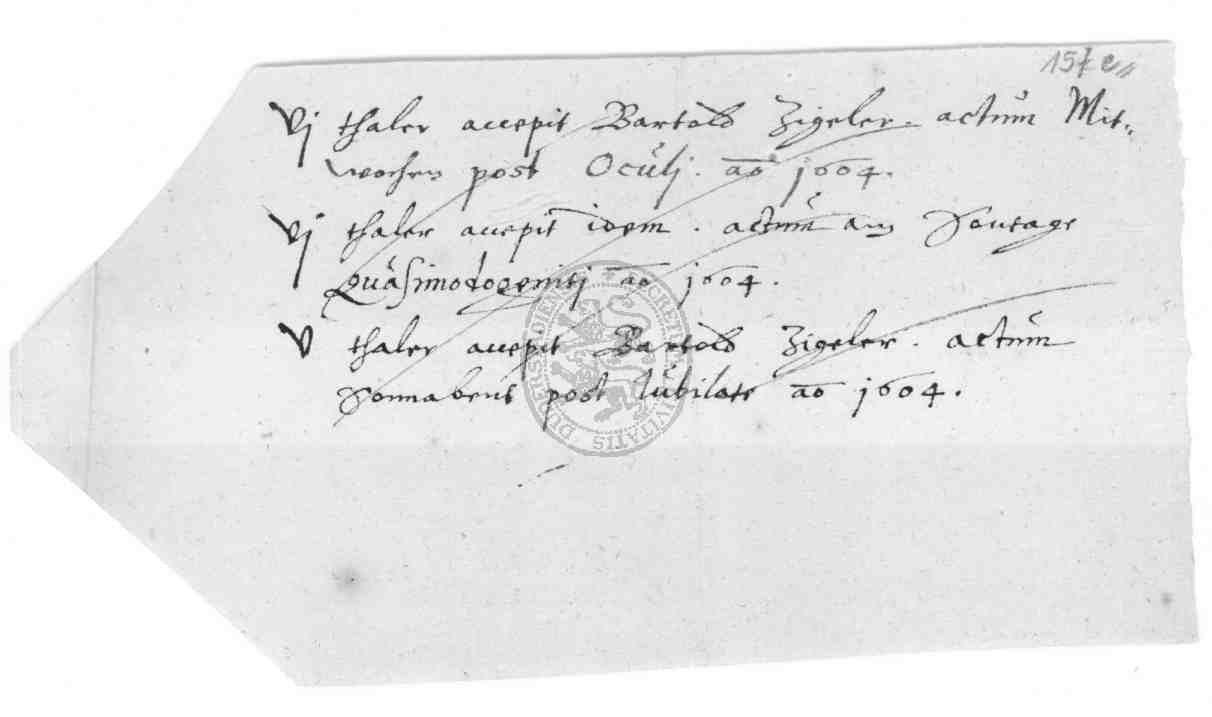 157 e
vj thaler accepit Bartold Zigeler. actum Mit-
wochen post Oculj. ao 1604.
vj thaler accepit idem. actum am Sontage
Quasimodogenitj ao 1604.
v thaler accepit Bartold Zigeler. actum
Sonnabent post Iubilate ao 1604.